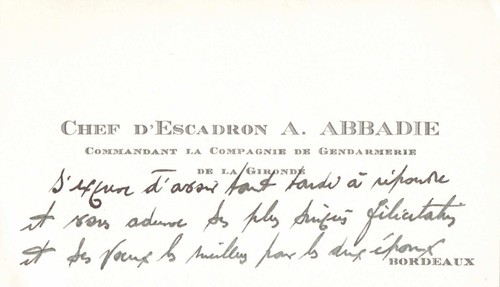 CHEF D'ESCADRON A. ABBADIE
COMMANDANT LA COMPAGNIE DE GENDARMERIE
DE LA GIRONDE
S'excuse d'avoir tant tardé à répondre
et vous adresse ses plus sincères félicitations
et ses vœux les meilleurs pour les deux époux
BORDEAUX